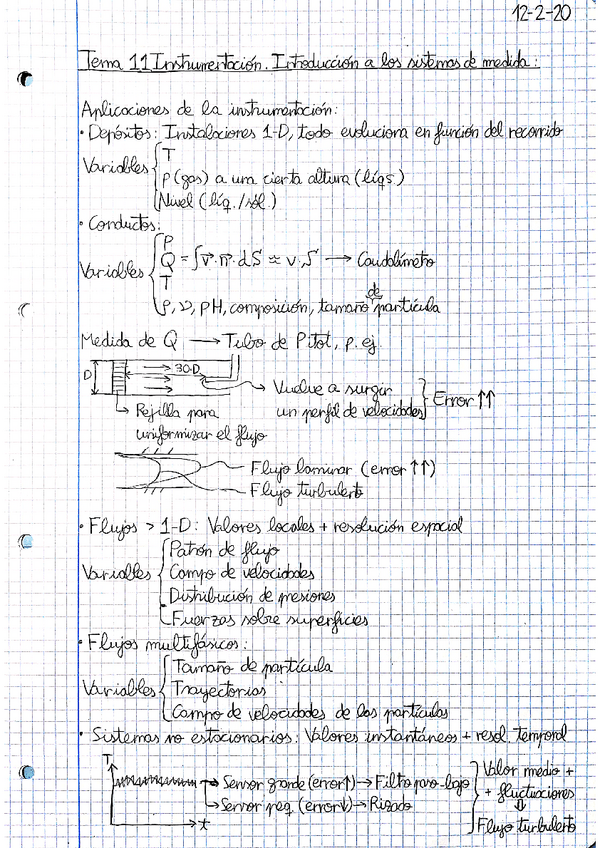 12-2-20
Tema 11 Instrumentación. Introducción a los sistemas de medida:
Aplicaciones de la instrumentación:
• Depósitos: Instalaciones 1-D, todo evoluciona en función del recorrido
Variables { T
P (gas) a una cierta altura (líqs)
Nivel (líq./sól.)
• Conductos:
Variables { P
Q = ∫ v⃗·n⃗·dS ≈ v·S → Caudalímetro
T
ρ, ν, pH, composición, tamaño de partícula
Medida de Q → Tubo de Pitot, p. ej.
D
30·D
Vuelve a surgir
un perfil de velocidades } Error ↑↑
Rejilla para
uniformizar el flujo
Flujo laminar (error ↑↑)
Flujo turbulento
• Flujos > 1-D: Valores locales + resolución espacial
Variables { Patrón de flujo
Campo de velocidades
Distribución de presiones
Fuerzas sobre superficies
• Flujos multifásicos:
Variables { Tamaño de partícula
Trayectorias
Campo de velocidades de las partículas
• Sistemas no estacionarios: Valores instantáneos + resol. temporal
T
t
Sensor grande (error↑) → Filtro paso-bajo
Sensor peq. (error↓) → Rizado
} Valor medio +
+ fluctuaciones
⇓
Flujo turbulento